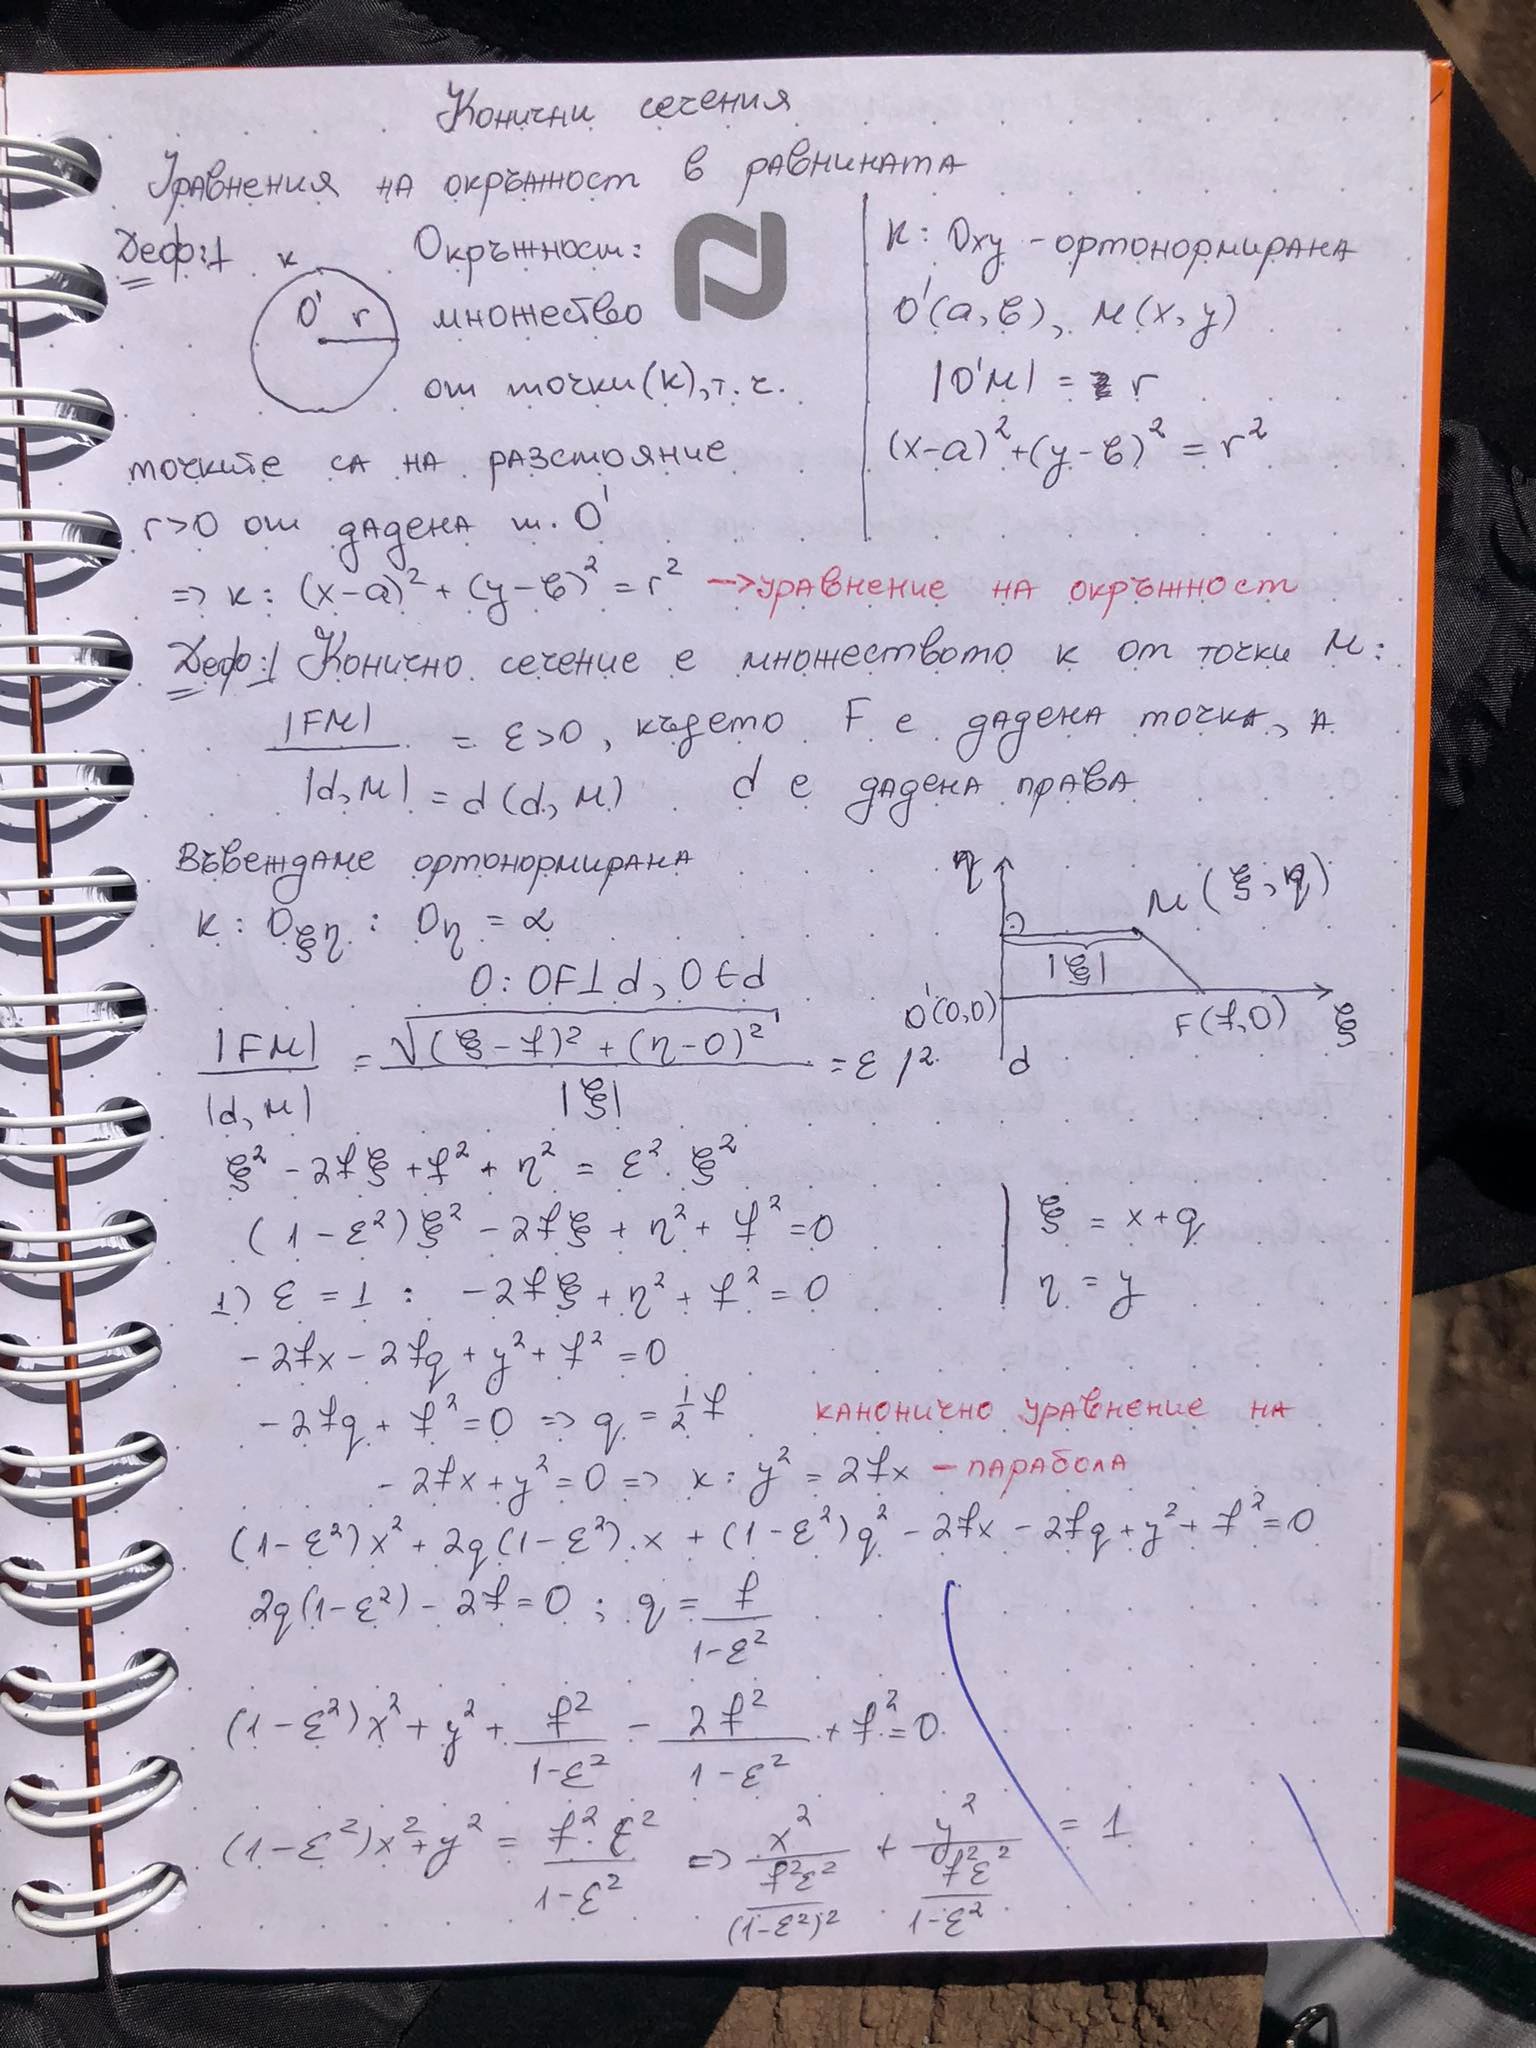 Конични сечения
Уравнения на окръжност в равнината
Деф:1 к Окръжност:
O' r множество
от точки(к), т.ч.
точките са на разстояние
r>0 от дадена т. O'
К: Oxy - ортонормирана
O'(a, b), M(x, y)
|O'M| = r
(x-a)² + (y-b)² = r²
=> к: (x-a)² + (y-b)² = r² -> уравнение на окръжност
Деф:1 Конично сечение е множеството к от точки M:
|FM| / |d,M| = ε>0, където F е дадена точка, а
|d,M| = d(d, M) d е дадена права
Въвеждаме ортонормирана
К: Oξη : Oη = α
O: OF⊥d, O∈d
η M(ξ, η)
|ξ|
O'(0,0) F(f,0) ξ
d
|FM| / |d,M| = √((ξ-f)² + (η-0)²) / |ξ| = ε /²
ξ² - 2fξ + f² + η² = ε². ξ²
(1-ε²)ξ² - 2fξ + η² + f² = 0
1) ε = 1 : -2fξ + η² + f² = 0
| ξ = x+q
| η = y
-2fx - 2fq + y² + f² = 0
-2fq + f² = 0 => q = ½f канонично уравнение на
-2fx + y² = 0 => к: y² = 2fx - парабола
(1-ε²)x² + 2q(1-ε²).x + (1-ε²)q² - 2fx - 2fq + y² + f² = 0
2q(1-ε²) - 2f = 0 ; q = f / (1-ε²)
(1-ε²)x² + y² + f² / (1-ε²) - 2f² / (1-ε²) + f² = 0
(1-ε²)x² + y² = f².ε² / (1-ε²) => x² / (f²ε² / (1-ε²)²) + y² / (f²ε² / (1-ε²)) = 1